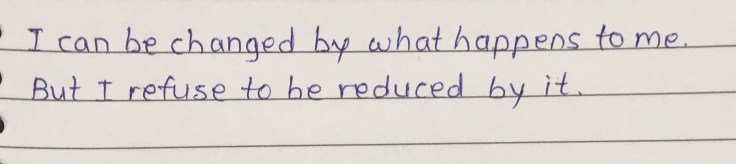 I can be changed by what happens to me.
But I refuse to be reduced by it.